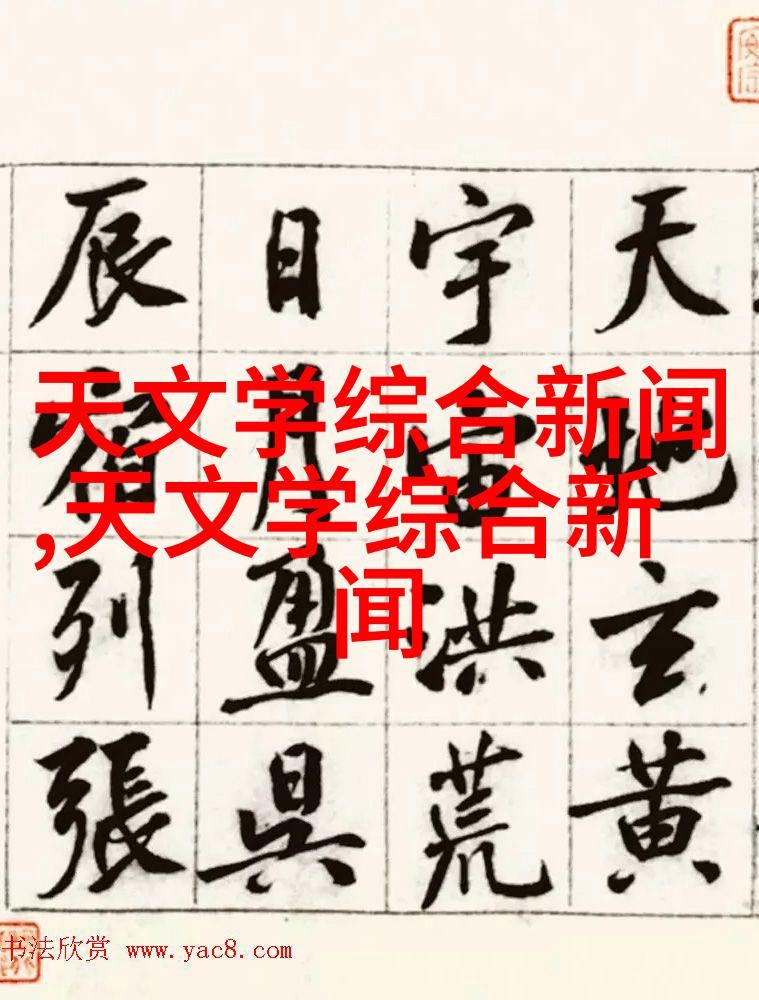 天地玄黄
宇宙洪荒
日月盈昃
辰宿列張
天文学综合新闻
,天文学综合新
闻
书法欣赏 www.yac8.com